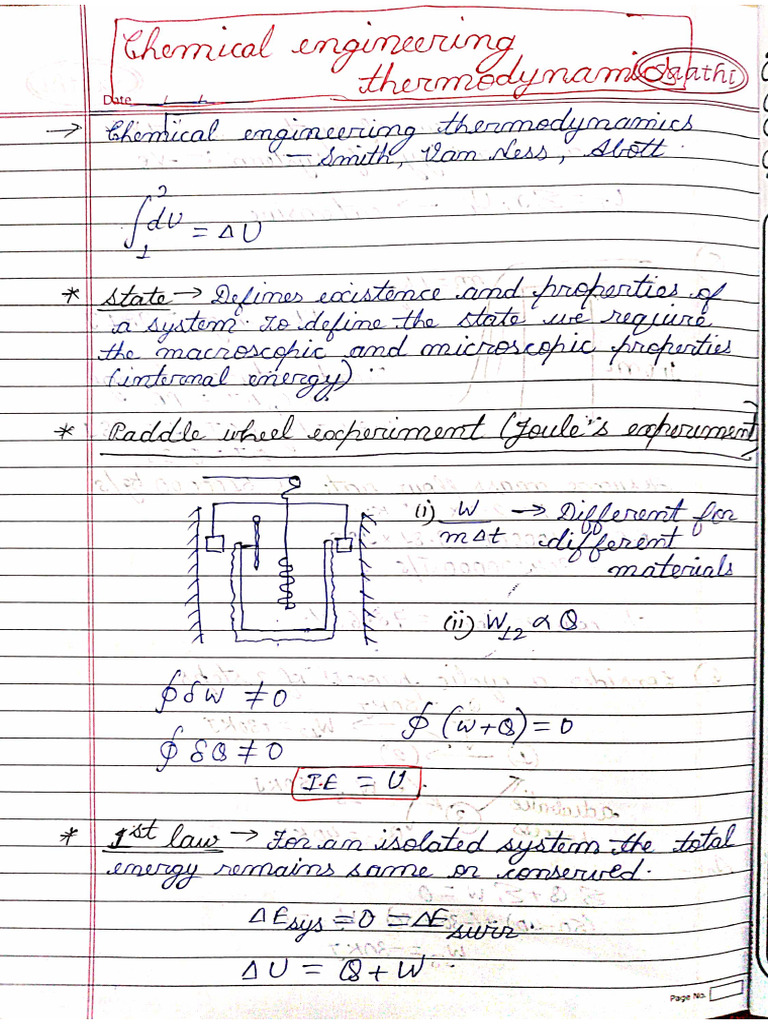 Chemical engineering
thermodynamics
Saathi
Date
→ Chemical engineering thermodynamics
– Smith, Van Ness, Abott
∫₁² dU = ΔU
* State → Defines existence and properties of
a system. To define the state we require
the macroscopic and microscopic properties
(internal energy)
* Paddle wheel experiment (Joule's experiment)
(i) W/mΔt → Different for
different
materials
(ii) W₁₂ α Q
∮ δW ≠ 0
∮ (W+Q) = 0
∮ δQ ≠ 0
I.E = U.
* 1st law → For an isolated system the total
energy remains same or conserved.
ΔEsys = 0 = ΔEsurr.
ΔU = Q + W
Page No.